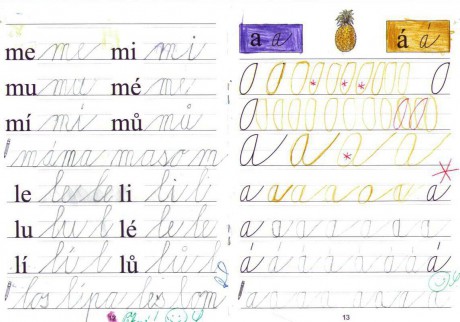 me me mi mi
mu mu mé me
mí mí mů mů
máma maso m
le le le li li li
lu lu l lé le le
lí lí l lů lů l
los lípa les lom
a a á á
a a a a
a á
a a a a a a a
á á á á á á á á
13